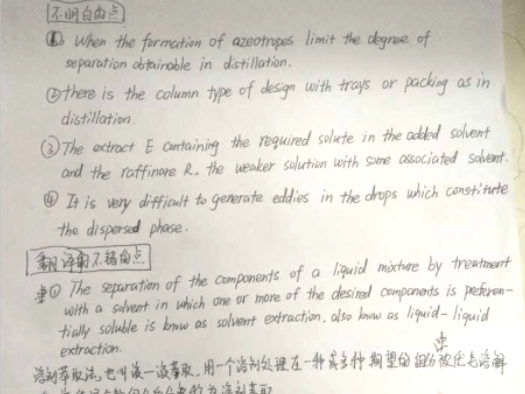 不明白的点
① When the formation of azeotropes limit the degree of
separation obtainable in distillation.
② there is the column type of design with trays or packing as in
distillation.
③ The extract E containing the required solute in the added solvent
and the raffinare R. the weaker solution with some associated solvent.
④ It is very difficult to generate eddies in the drops which constitute
the dispersed phase.
翻译的不错的点
① The separation of the components of a liquid mixture by treatment
with a solvent in which one or more of the desired components is preferen-
tially soluble is know as solvent extraction, also know as liquid-liquid
extraction.
溶剂萃取法,也叫液一液萃取。用一个溶剂处理在一种或多种期望的组分被优先溶解